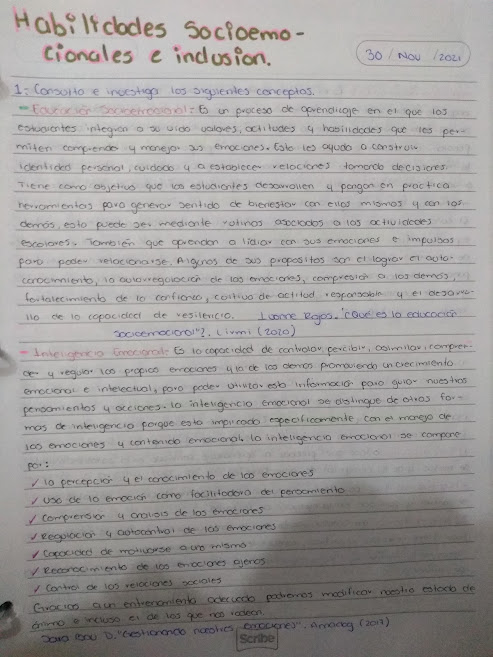 Habilidades Socioemo-
cionales e inclusion.
30 / Nov / 2021
1: Consulta e investiga los siguientes conceptos.
- Educación Socioemocional: Es un proceso de aprendizaje en el que los
estudiantes integran a su vida valores, actitudes y habilidades que les per-
miten comprender y manejar sus emociones. Esto les ayuda a construir
identidad personal, cuidado y a establecer relaciones tomando decisiones.
Tiene como objetivo que los estudiantes desarrollen y pongan en practica
herramientas para generar sentido de bienestar con ellos mismos y con los
demás, esto puede ser mediante rutinas asociadas a las actividades
escolares. También que aprendan a lidiar con sus emociones e impulsos
para poder relacionarse. Algunos de sus propositos son el lograr el auto-
conocimiento, la autorregulación de las emociones, compresión a los demás,
fortalecimiento de la confianza, cultivo de actitud responsable y el desarro-
llo de la capacidad de resiliencia. Ivonne Rojas. "¿Que es la educación
socioemocional"?. Lirmi (2020)
- Inteligencia Emocional: Es la capacidad de controlar, percibir, asimilar, compren-
der y regular las propias emociones y la de los demas promoviendo un crecimiento
emocional e intelectual, para poder utilizar esta información para guiar nuestros
pensamientos y acciones. la inteligencia emocional se distingue de otras for-
mas de inteligencia porque esta implicada especificamente con el manejo de
las emociones y contenido emocional. la inteligencia emocional se compone
por:
✓ la percepción y el conocimiento de las emociones
✓ uso de la emoción como facilitadora del pensamiento
✓ Comprensión y analisis de las emociones
✓ Regulación y autocontrol de las emociones
✓ Capacidad de motivarse a uno mismo
✓ Reconocimiento de las emociones ajenas
✓ Control de las relaciones sociales
Gracias a un entrenamiento adecuado podremos modificar nuestro estado de
animo o incluso el de los que nos rodean.
D. "Gestionando nuestras emociones". (2017)
Scribe